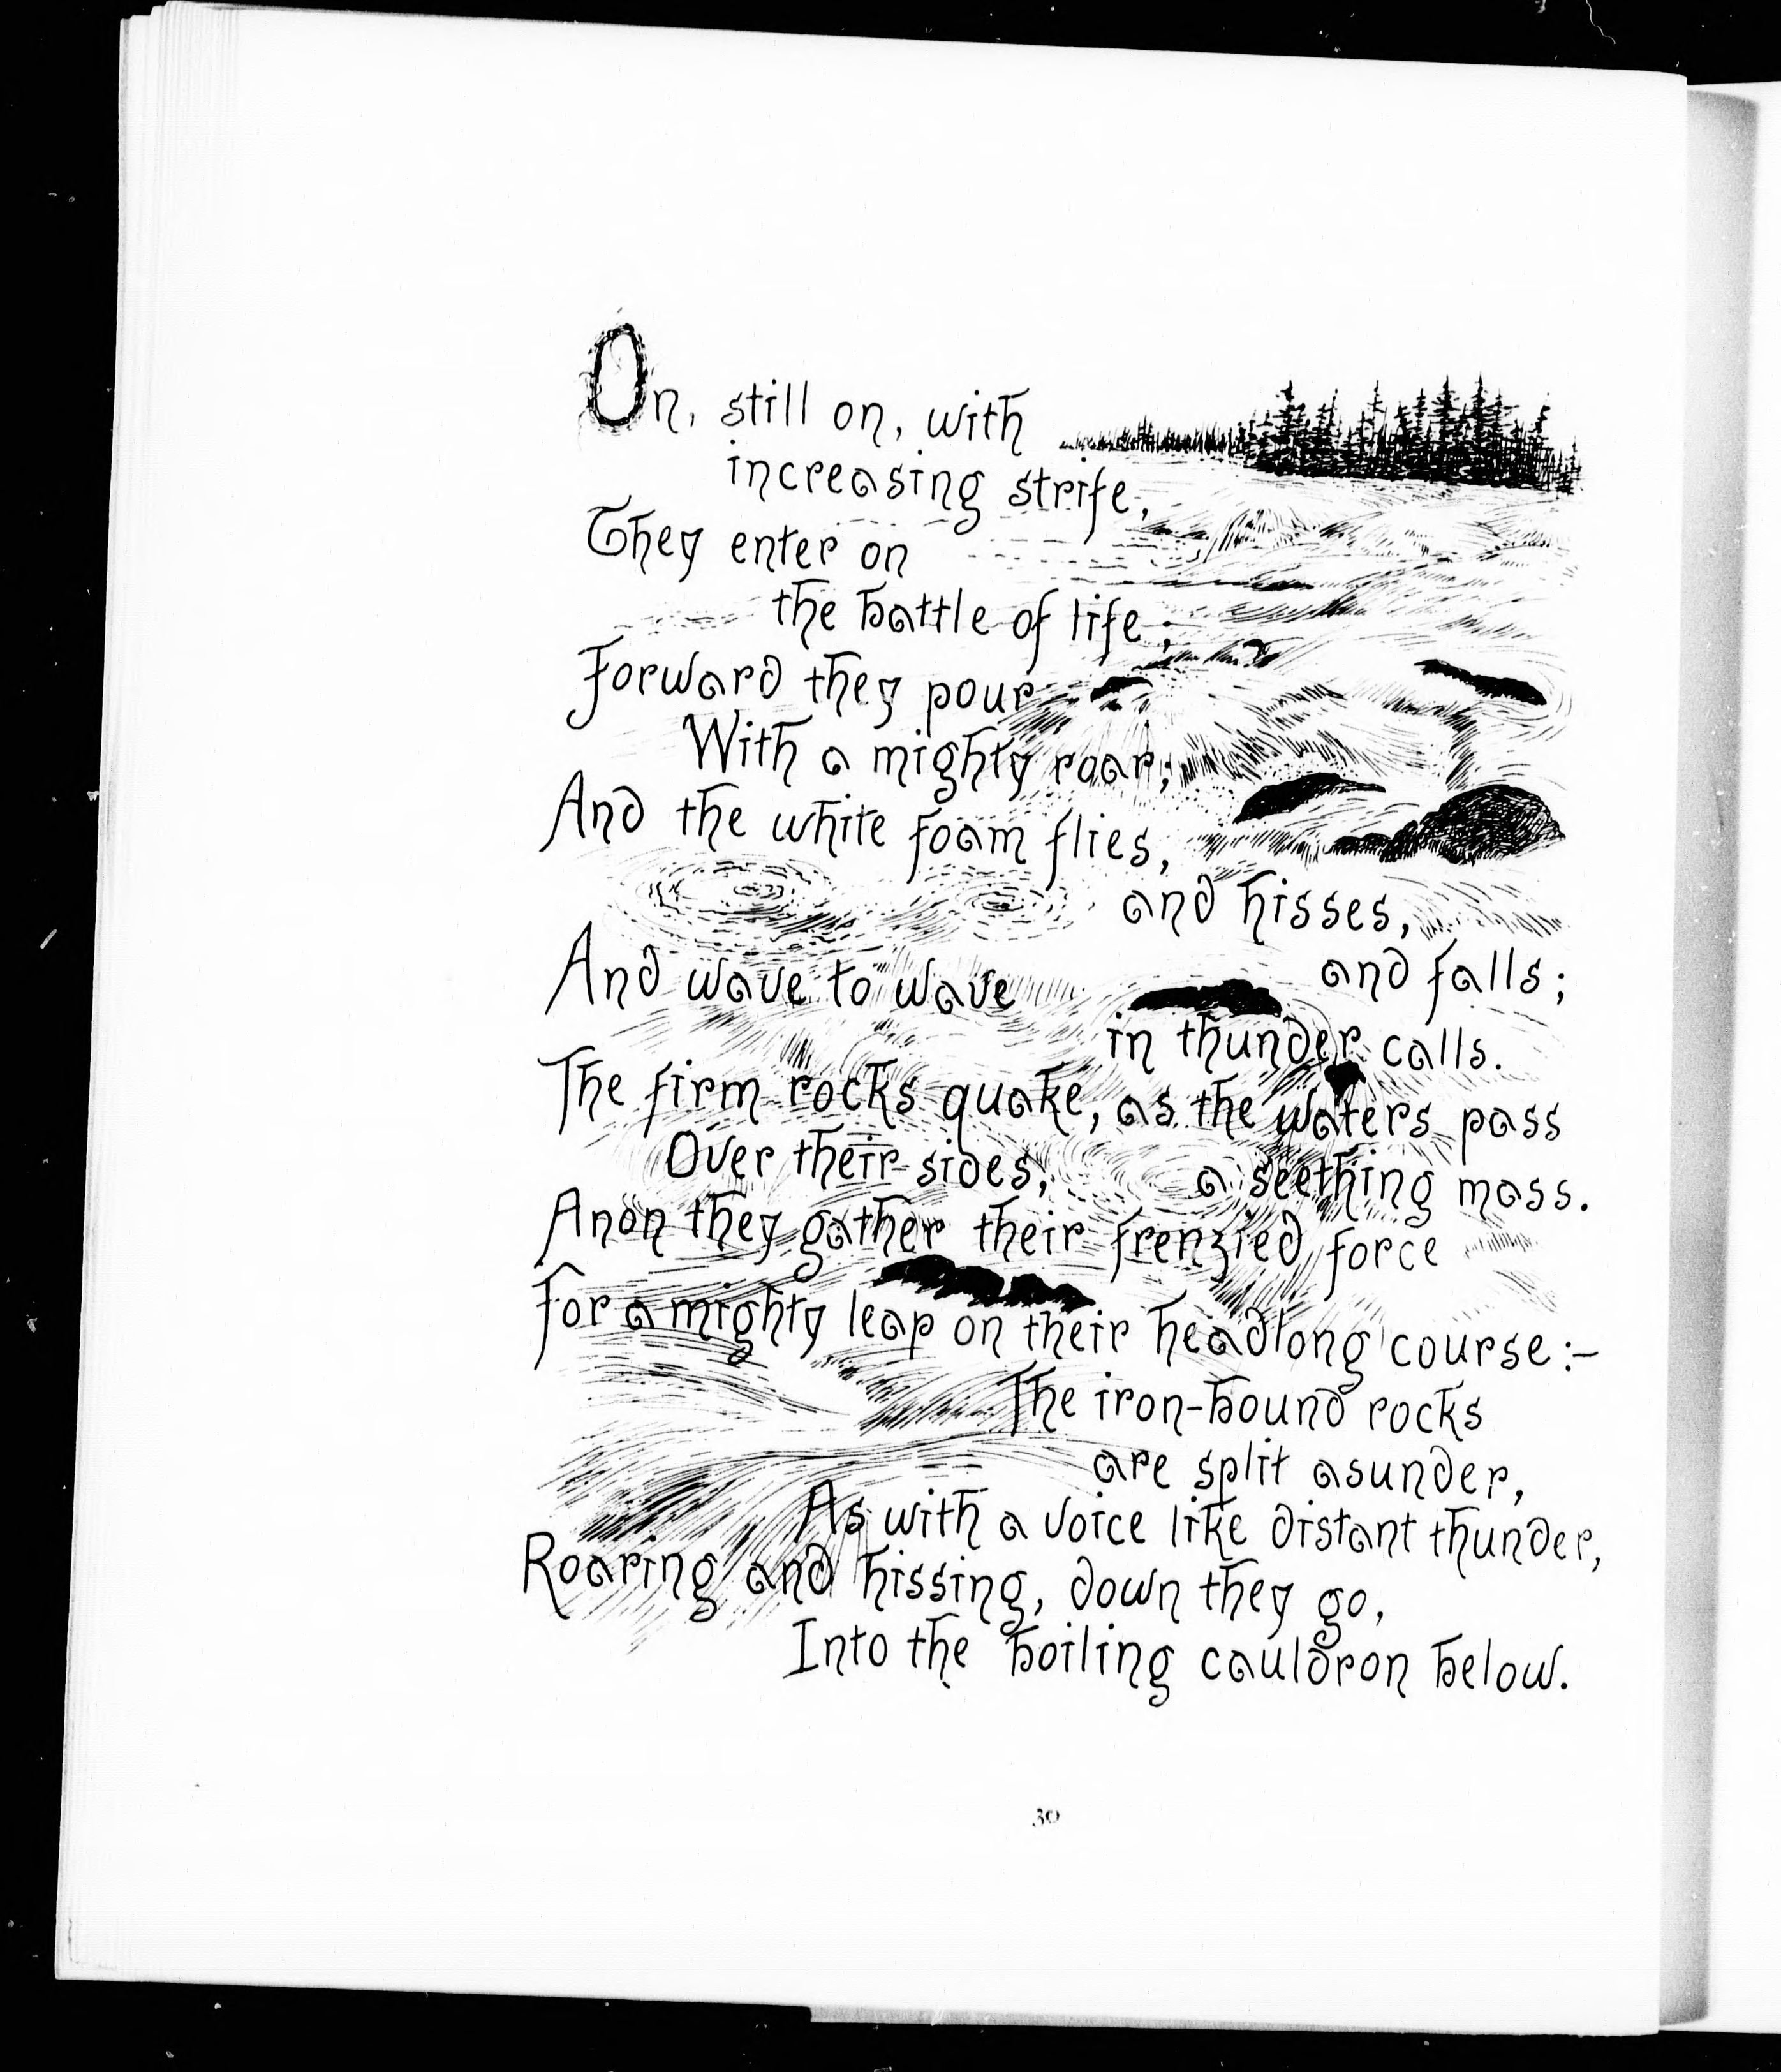 On, still on, with
increasing strife,
They enter on
the battle of life;
Forward they pour
With a mighty roar;
And the white foam flies,
and hisses,
and falls;
And wave to wave
in thunder calls.
The firm rocks quake, as the waters pass
Over their sides, a seething mass.
Anon they gather their frenzied force
For a mighty leap on their headlong course:-
The iron-bound rocks
are split asunder,
As with a voice like distant thunder,
Roaring and hissing, down they go,
Into the boiling cauldron below.
30